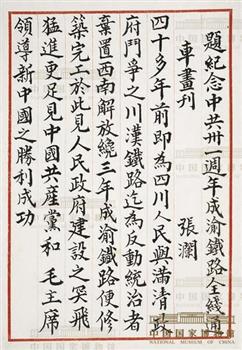 題紀念中共卅一週年成渝鐵路全綫通
車畫刊
張瀾
四十多年前即為四川人民與滿清政
府鬥爭之川漢鐵路迄為反動統治者
棄置西南解放纔三年成渝鐵路便修
築完工於此見人民政府建設之突飛
猛進更足見中國共產黨和 毛主席
領導新中國之勝利成功
中国国家博物馆
NATIONAL MUSEUM OF CHINA